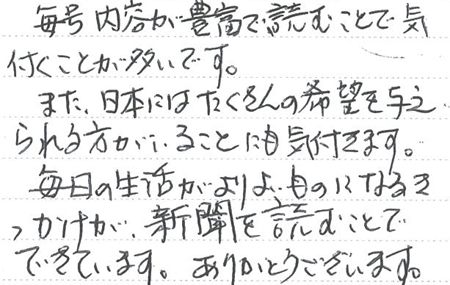 毎号内容が豊富で読むことで気
付くことが多いです。
また、日本にはたくさんの希望を与え
られる方がいることにも気付きます。
毎日の生活がよりよいものになるき
っかけが、新聞を読むことで
できています。ありがとうございます。